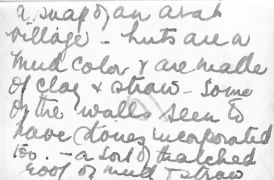 a snap of an arab
village - huts are a
mud color & are made
of clay & straw - some
of the walls seen to
have stones incorporated
too. - a sort of thatched
roof of mud & straw